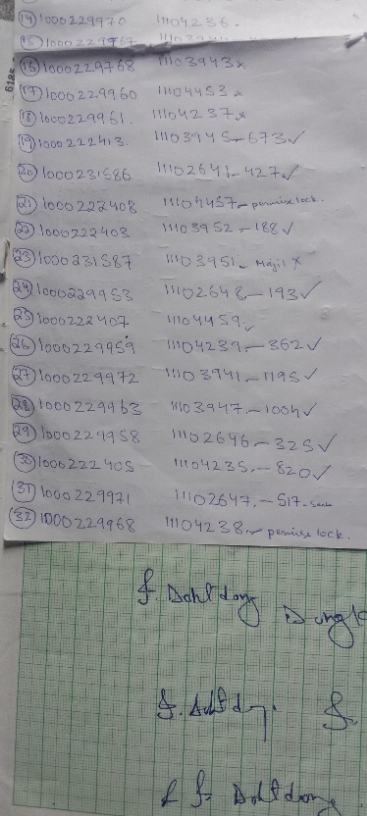 (14) 1000229970 11104236.
(15) 1000229767
(16) 1000229768 11103943x
(17) 1000229960 11104453x
(18) 1000229961. 11104237x
(19) 1000222413. 11103945-673✓
(20) 1000231586 11102641-427✓
(21) 1000222408 11104457- premise lock.
(22) 1000222403 11103952-188✓
(23) 1000231587 11103951- Majil x
(24) 1000229953 11102648-193✓
(25) 1000222407 11104459✓
(26) 1000229959 11104239-362✓
(27) 1000229972 11103941-1195✓
(28) 1000229963 11103947-1004✓
(29) 1000229958 11102646-325✓
(30) 1000222405 11104235.-820✓
(31) 1000229971 11102647.-517.
(32) 1000229968 11104238- premise lock.